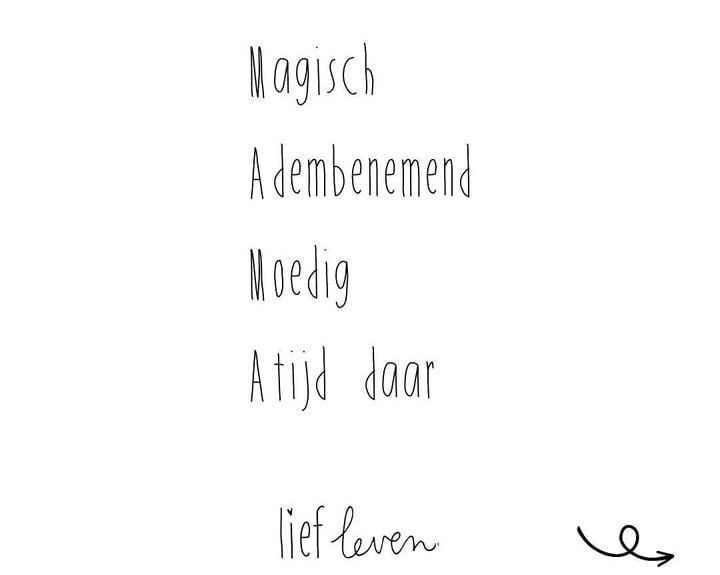 Magisch
Adembenemend
Moedig
Atijd daar
lief leven.